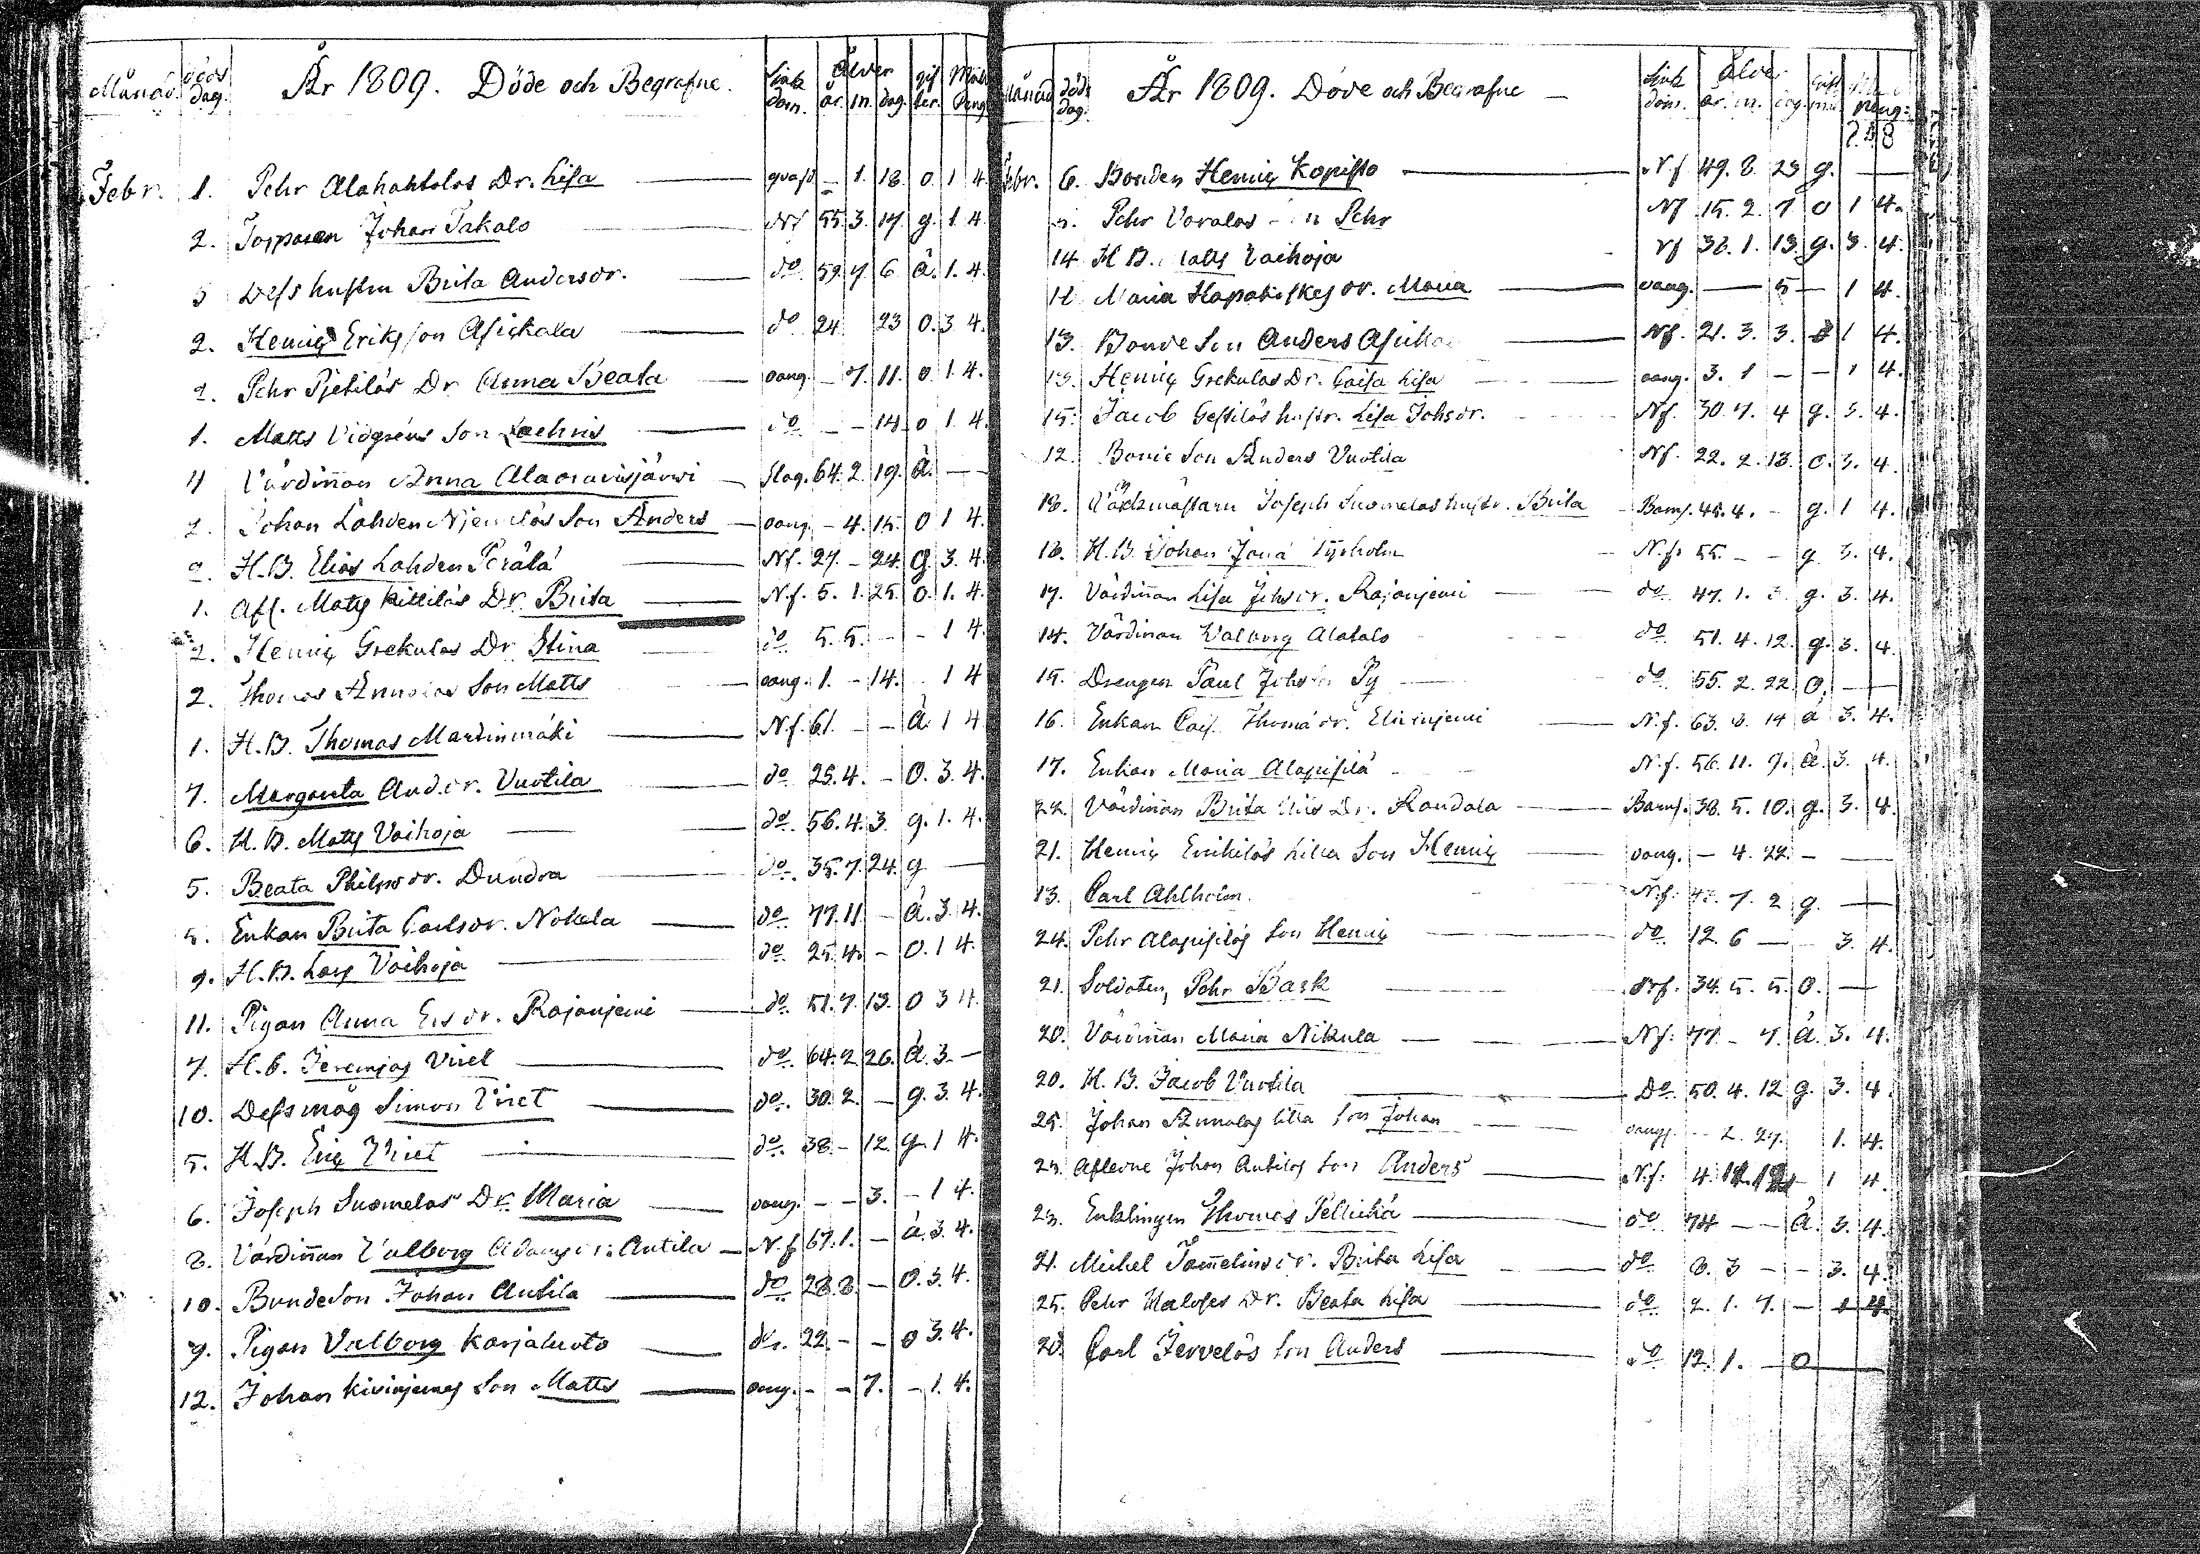 Månad. döds dag. År 1809. Döde och Begrafne. Siuk dom. Ålder år. m. dag. gif ter.
Febr. 1. Pehr Alahahtolas Dr. Lisa 1. 18. o. 1 4.
2. Johan Takalo Nf 55. 3. 17. g. 1. 4.
5 Dess hustru Brita Andersdr. do 59. 7 6 å. 1. 4.
2. Henric Eriksson Asickala do 24. 23 o. 3. 4.
2. Pehr Pjetiläs Dr Anna Beata oang. - 7. 11. o. 1. 4.
1. Matts Vidgréns Son Zachris do - - 14. o 1. 4.
11 Värdiñan Anna Alaoravisjärwi Slag. 64. 2. 19. å. - -
2. Johan Lahden Njemeläs Son Anders oang. - 4. 15. o 1 4.
2. H.B. Elias Lahden Perälä Nf. 27. - 24. g. 3. 4.
1. Afl. Matts Kittiläs Dr. Brita N.f. 5. 1. 25. o. 1. 4.
2. Henric Grekulas Dr. Stina do 5. 5. - - 1 4.
2. Thomas Annolas Son Matts oang. 1. - 14. 1 4
1. H.B. Thomas Martinmäki N.f. 61. - - å 1 4
7. Margareta And.dr. Vuotila do 25. 4. - o. 3. 4.
6. H.B. Matts Vaihoja do. 56. 4. 3. g. 1. 4.
5. Beata Philpsdr. Dundra do. 35. 7. 24. g -
5. Enkan Brita Carlsdr. Nokela do. 77. 11 - å. 3. 4.
9. H.B. Lars Vaihoja do. 25. 4. - o. 1 4.
11. Pigan Anna Ersdr. Rajanjemi do. 51. 7. 13. o 3 4.
7. H.B. Jeremias Viret do. 64. 2. 26. å. 3. -
10. Dess måg Simon Viret do. 30. 2. - g. 3. 4.
5. H.B. Eric Viret do. 38. - 12. g. 1 4.
6. Joseph Suomelas Dr. Maria oang. - - 3. - 1 4.
8. Värdiñan Valborg Adamsdr. Antila N.f 67. 1. - å. 3. 4.
10. Bondeson Johan Antila do 28. 8. - o. 3. 4.
9. Pigan Valborg Karjaluoto do. 22. - - o 3. 4.
12. Johan Kivinjemes Son Matts oang. - - 7. - 1. 4.
Månad döds dag. År 1809. Döde och Begrafne Siuk dom. Ålder år. m. dag. peng:
248
Febr. 6. Bonden Henric Kopisto N.f 49. 8. 23 g. -
Pehr Varalas Pehr Nf 15. 2. 7 o 1 4.
14 H B. Vaihoja Nf 36. 1. 13. g. 3. 4.
11. Maria Hapakoskes dr. Maria oang. - 5 - 1 4.
13. Bonde Son Anders Nf. 21. 3. 3. 1 4.
13. Henric Grekulas Dr. Caisa Lisa oang. 3. 1 - - 1 4.
15. Jacob Gestiläs hustr. Lisa Johsdr. Nf. 30. 7. 4 g. 3. 4.
12. Bonde Son Anders Vuotila Nf. 22. 2. 13. o. 3. 4.
18. Joseph Suomelas hustr. Brita Barns. 45. 4. - g. 1 4.
18. H.B. Johan Tyrholm N.f. 55. - - g 3. 4.
17. Värdiñan Lisa Johsdr. Rajanjemi do 47. 1. 3. g. 3. 4.
14. Värdiñan Walborg Alatalo do 51. 4. 12. g. 3. 4.
15. Drengen Paul Py do 55. 2. 22. o. -
16. Enkan Thomædr. N.f. 63. 3. 14 å 3. 4.
17. Enkan Maria Alapisilä N.f. 56. 11. 9. å. 3. 4.
22. Värdiñan Brita Dr. Randala Barns. 38. 5. 10. g. 3. 4.
21. Henric Erikiläs Lilla Son Henric oang. - 4. 22. - -
13. Carl Ahlholm. N.f. 7. 2 g. -
24. Pehr Alapisiläs Son Henric do 12. 6 - - 3. 4.
21. Soldaten, Pehr Bask Nf. 34. 5. 5. o. -
20. Värdiñan Maria Nikula Nf. 77. - 7. å. 3. 4.
20. H.B. Jacob Vuotila Do 50. 4. 12 g. 3. 4.
25. Johan Annalas lilla Son Johan oang. - 2. 27. 1. 4.
23. Afledne Johan Antilas Son Anders N.f. 4. 1 4.
23. Enklingen Thomas Pellickä do 74 - - å. 3. 4.
21. Michel Brita Lisa do 8. 3 - - 3. 4.
25. Pehr Haloses Dr. Beata Lisa do 2. 1. 7. -
20. Carl Jerveläs Son Anders do 12. 1. - o -